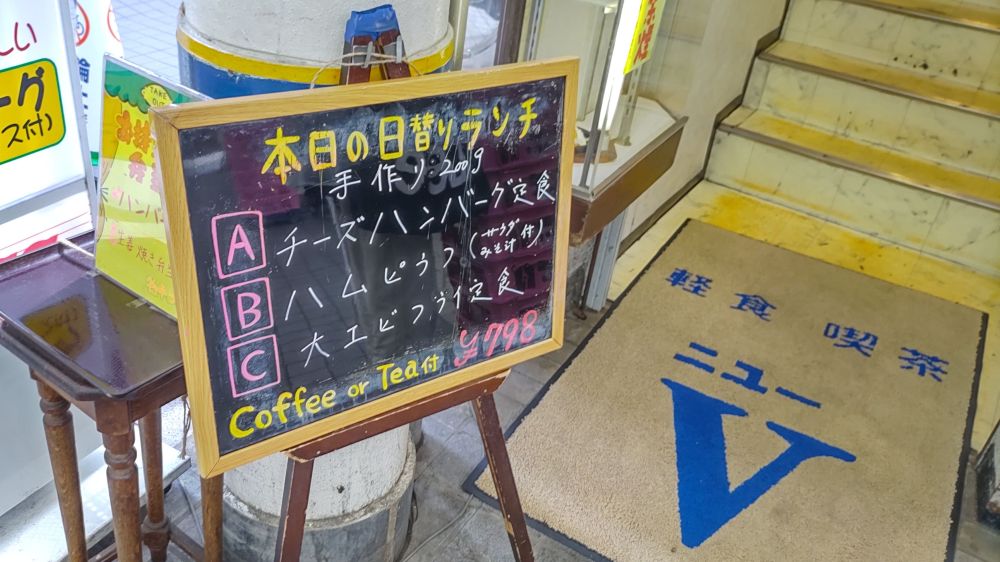 しい
ーグ
ス付)
TAKE OUT
ハンバー
生姜焼き弁
本日の日替りランチ
手作り200g
A チーズハンバーグ定食
B ハムピラフ(サラダみそ汁付)
C 大エビフライ定食
Coffee or Tea付 ¥798
軽食 喫茶
ニュー
V